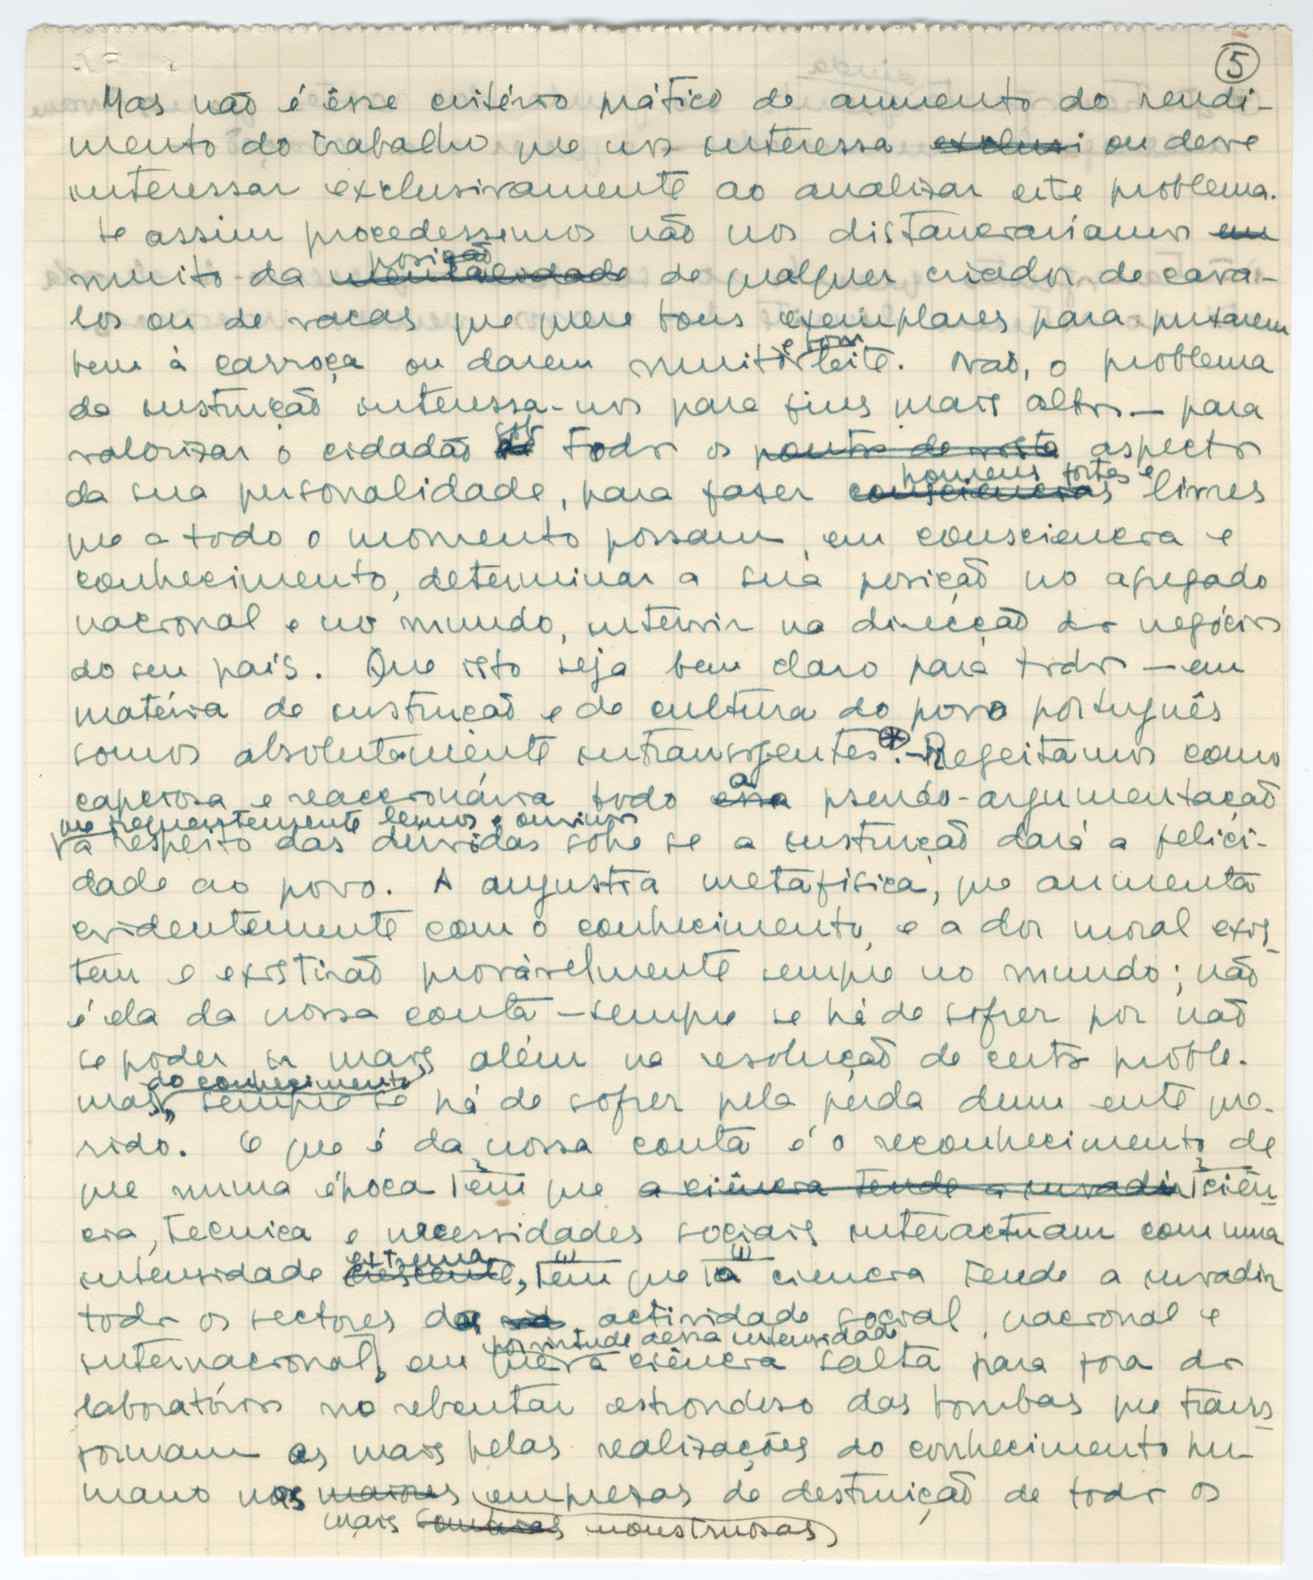 5
Mas não é êsse critério prático de aumento do rendi-
mento do trabalho que nos interessa exclusi ou deve
interessar exclusivamente ao analisar este problema.
Se assim procedessemos não nos distanciariamos em
posição
muito da mentalidade de qualquer criador de cava-
los ou de vacas que quere bons exemplares para puxarem
e bom
bem à carroça ou darem muito leite. Não, o problema
da instrução interessa-nos para fins mais altos — para
sob
valorizar o cidadão de todos os pontos de vista aspectos
homens fortes e
da sua personalidade, para fazer consciencias livres
que a todo o momento possam, em consciencia e
conhecimento, determinar a sua posição no agregado
nacional e no mundo, intervir na direcção dos negócios
do seu país. Que isto seja bem claro para todos — em
matéria de instrução e de cultura do povo português
somos absolutamente intransigentes. — Regeitamos como
a
capciosa e reaccionária toda essa pseudo-argumentação
que frequentemente lemos e ouvimos
a respeito das duvidas sobre se a instrução dará a felici-
dade ao povo. A angustia metafisica, que aumenta
evidentemente com o conhecimento, e a dor moral exis-
tem e existirão provávelmente sempre no mundo; não
é ela da nossa conta — sempre se há de sofrer por não
se poder ir mais além na resolução de certos proble-
do conhecimento
mas, sempre se há de sofrer pela perda dum ente que-
rido. O que é da nossa conta é o reconhecimento de
2 2
que numa época em que a ciência tende a invadir ciên-
cia, tecnica e necessidades sociais interactuam com uma
extrema (1) (1)
intensidade crescente, em que a ciencia tende a invadir
todos os sectores da actividade social, nacional e
por virtude dessa intensidade
internacional, em que a ciência salta para fora dos
laboratórios no rebentar estrondoso das bombas que trans-
formam as mais belas realizações do conhecimento hu-
mano nas maiores empresas de destruição de todos os
mais monstruosas